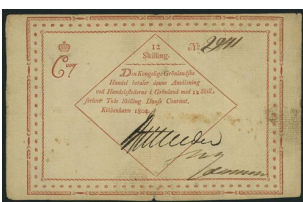 12
Skilling.
No. 2941
C7
Den Kongelige Grönlandske
Handel betaler denne Anviisning
ved Handelsstederne i Grönland med 12 Skill.
skriver Tolv Skilling Dansk Courant.
Kiöbenhavn 1804.